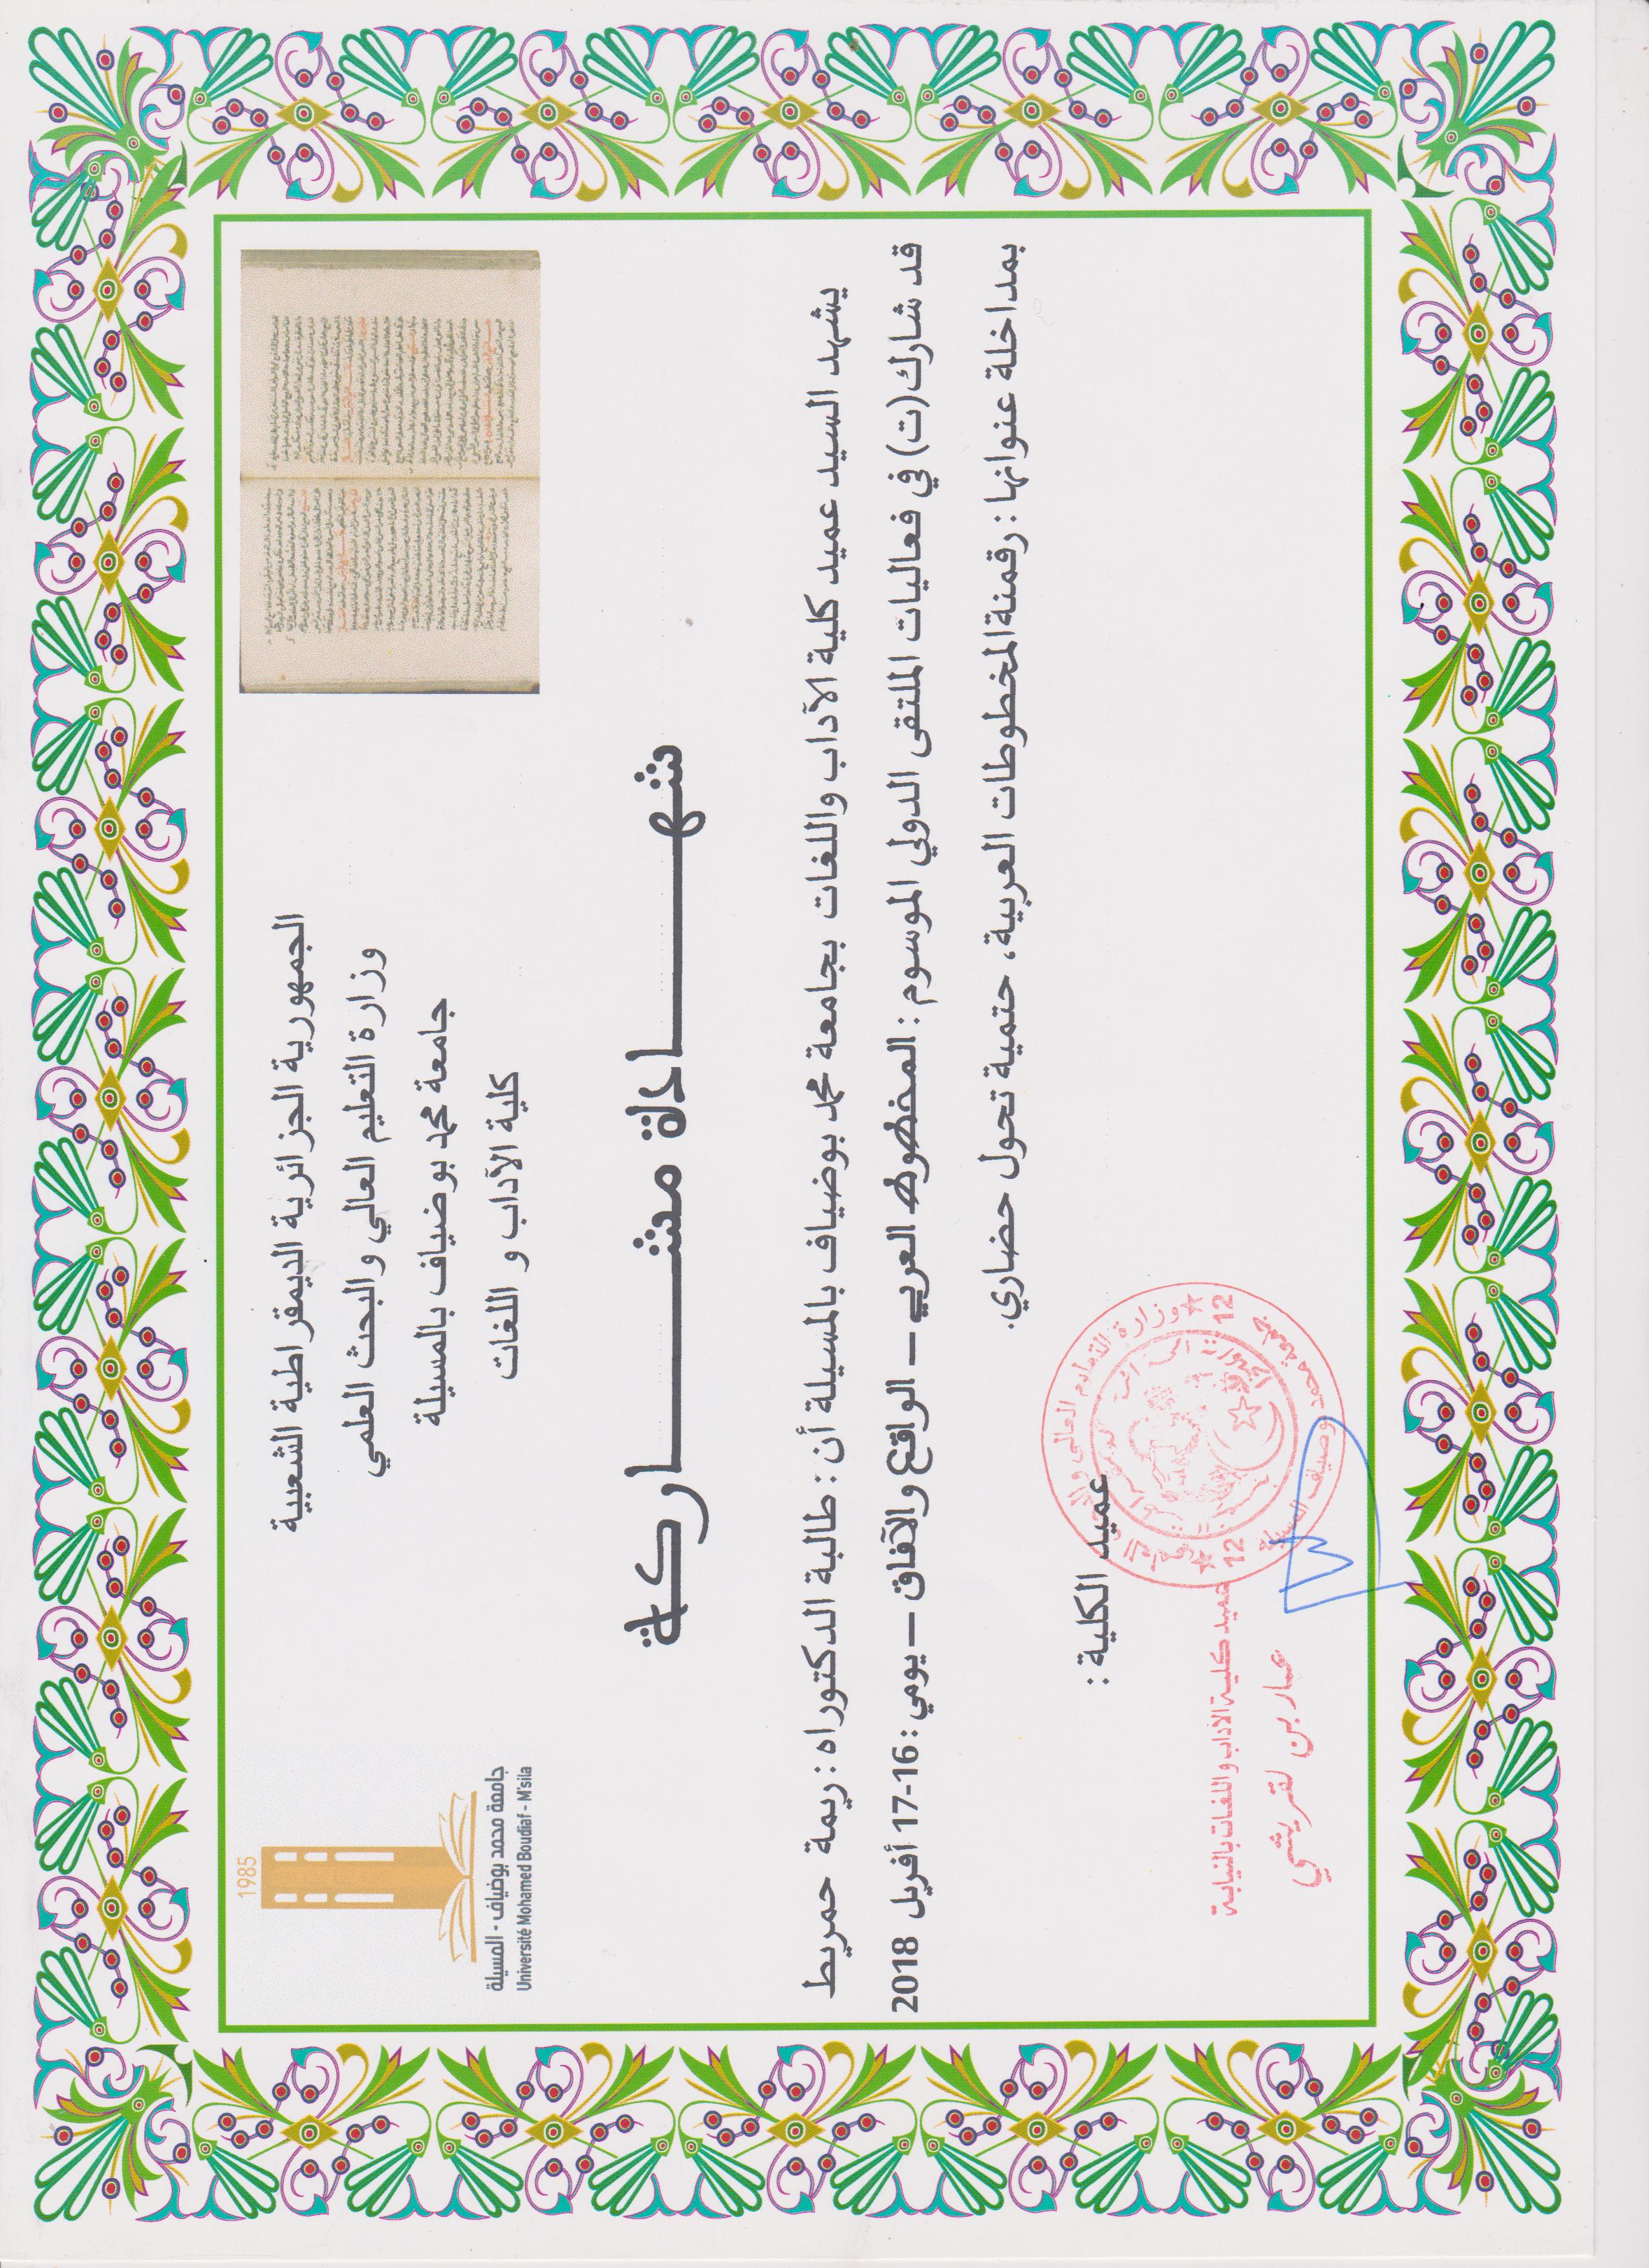 الجمهورية الجزائرية الديمقراطية الشعبية
وزارة التعليم العالي و البحث العلمي
جامعة محمد بوضياف بالمسيلة
كلية الآداب و اللغات
1985
جامعة محمد بوضياف - المسيلة
Université Mohamed Boudiaf - M'sila
شهـــــــادة مشـــــــاركة
يشهد السيد عميد كلية الآداب واللغات بجامعة محمد بوضياف بالمسيلة أن : طالبة الدكتوراه : ريمة حمريط
قد شارك(ت) في فعاليات الملتقى الدولي الموسوم : المخطوط العربي – الواقع والآفاق – يومي : 16-17 أفريل 2018
بمداخلة عنوانها : رقمنة المخطوطات العربية، حتمية تحول حضاري.
عميد الكلية :
وزارة التعليم العالي و البحث العلمي
جامعة محمد بوضياف المسيلة
12
12
عميد كلية الآداب و اللغات بالنيابة
عمار بن لقريشي